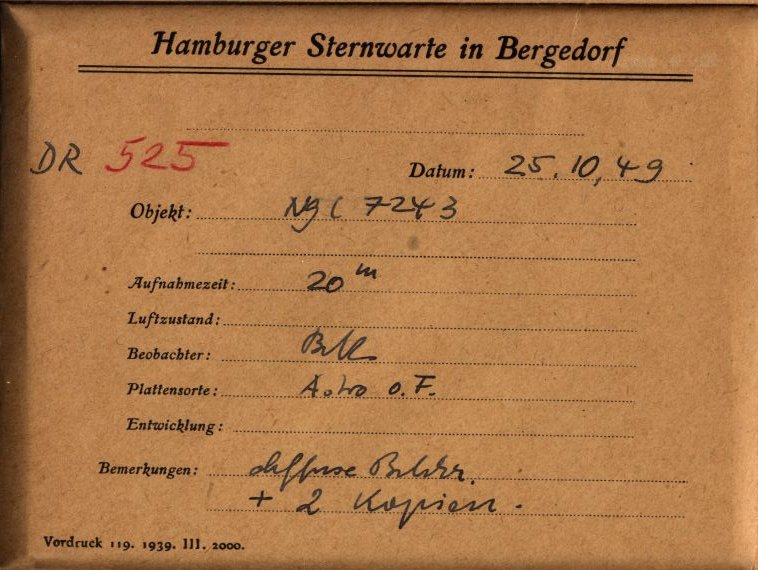 Hamburger Sternwarte in Bergedorf
DR 525
Datum: 25.10.49
Objekt: NGC 7243
Aufnahmezeit: 20 m
Luftzustand:
Beobachter:
Plattensorte: Astro o.F.
Entwicklung:
Bemerkungen: diffuse Bilder.
+ 2 Kopien.
Vordruck 119. 1939. III. 2000.